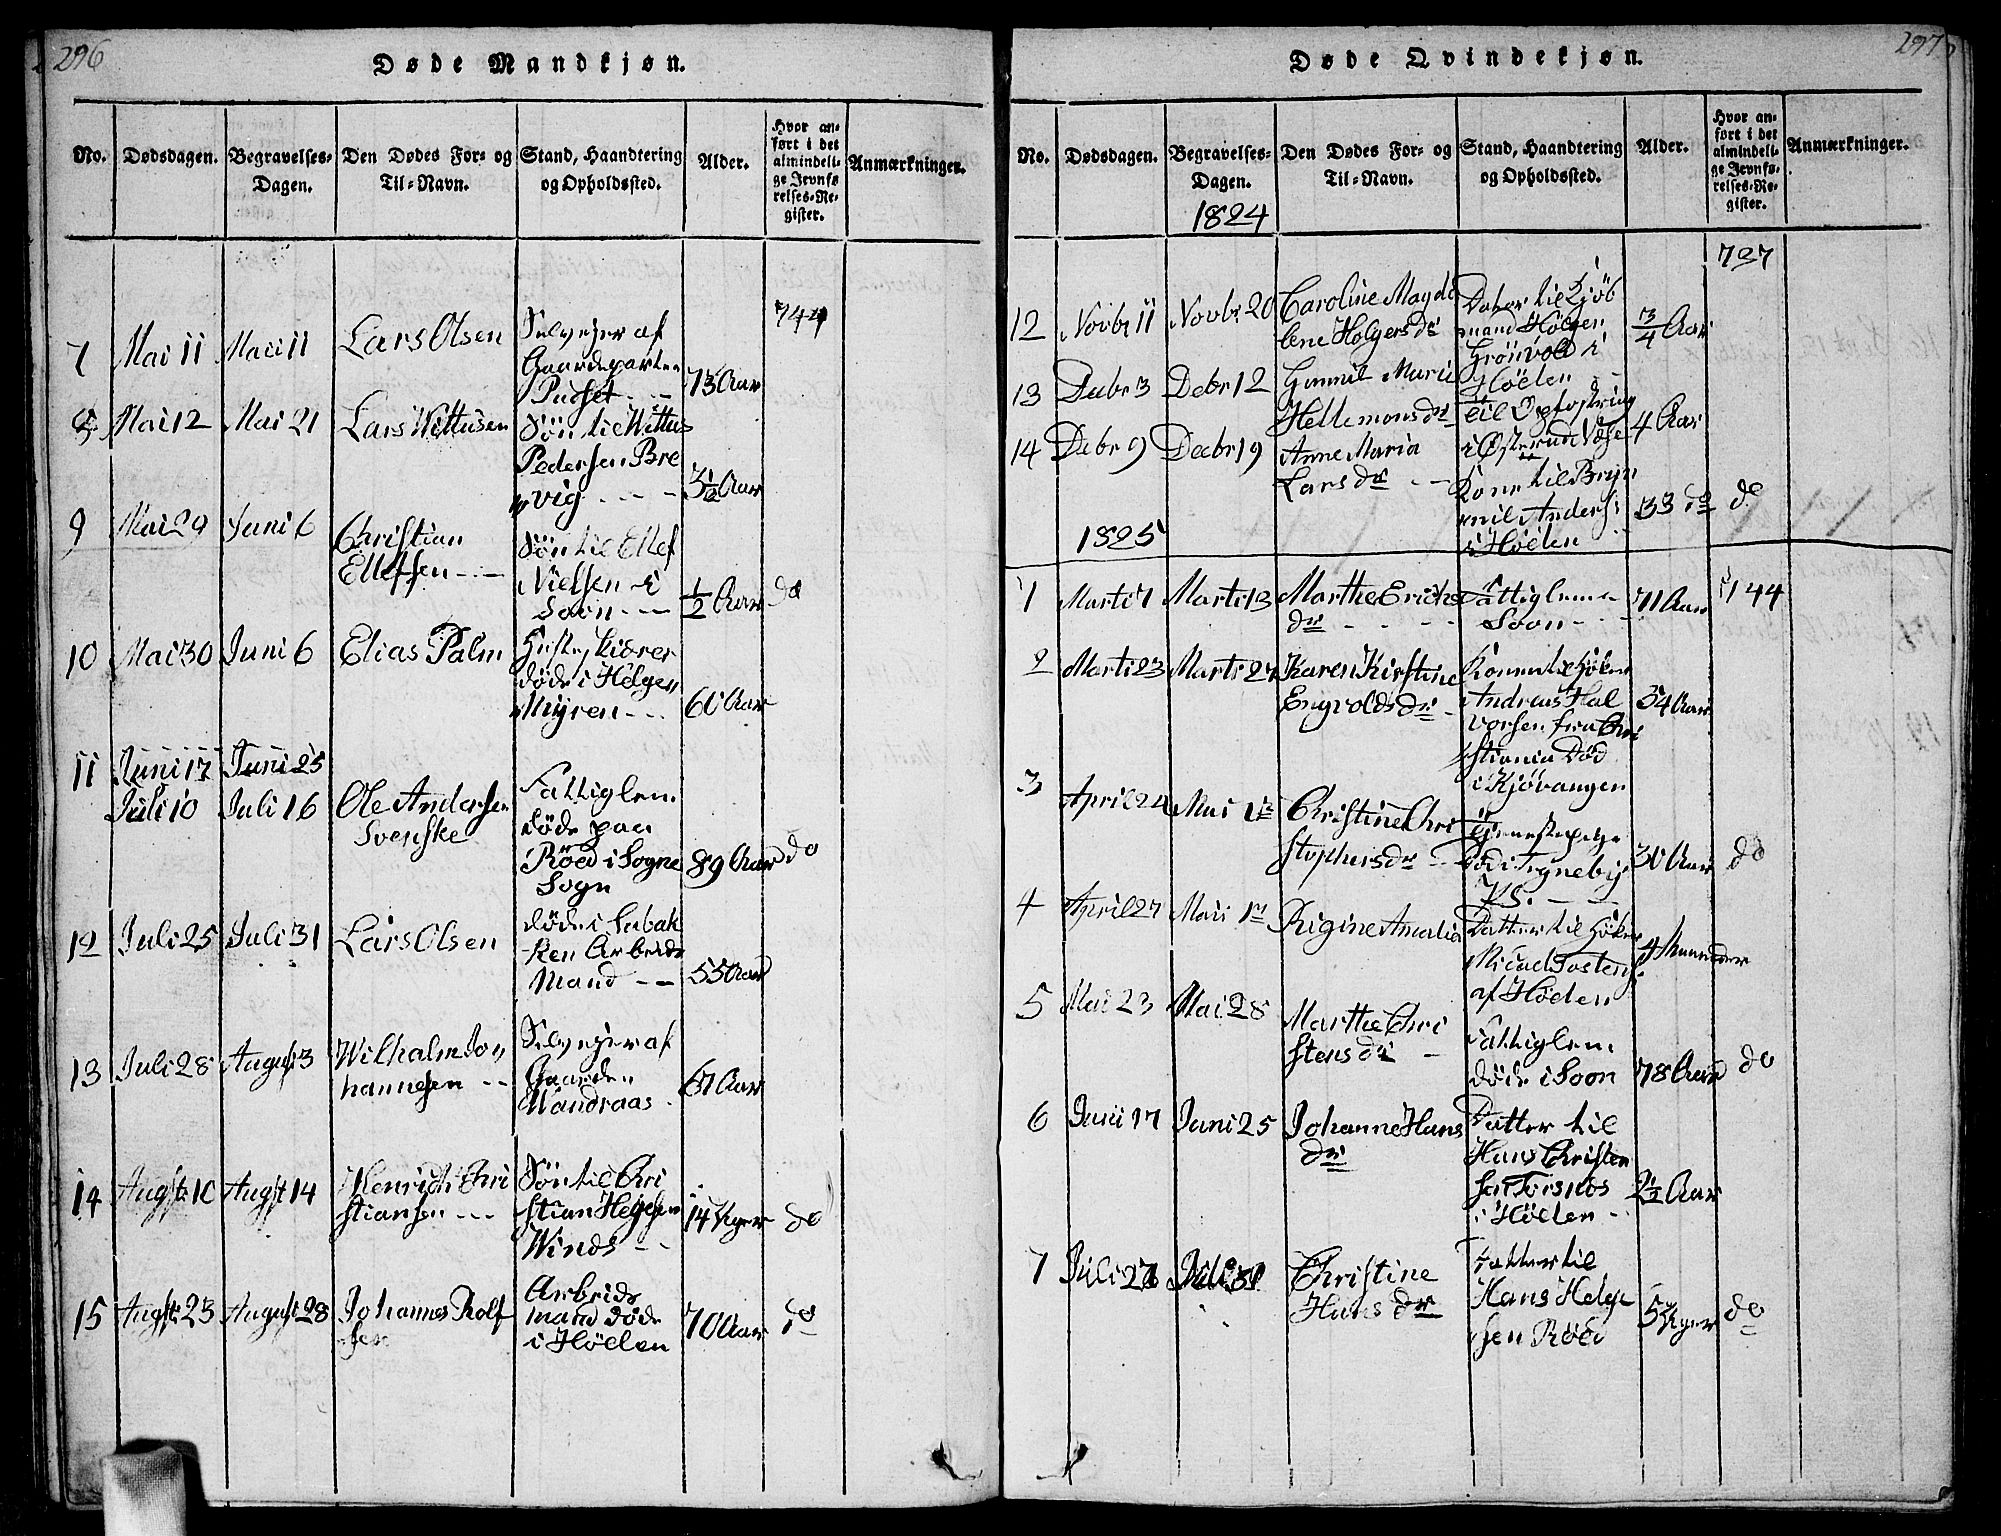 296
Døde Mandkjøn.
No.
Dødsdagen.
Begravelses-
Dagen.
Den Dødes For- og
Til-Navn.
Stand, Haandtering
og Opholdssted.
Alder.
Hvor an-
ført i det
almindeli-
ge Jevnfø-
relses-Re-
gister.
Anmærkninger.
7 Mai 11 Maii 11 Lars Olsen
Selvejer af
Gaardeparten
73 Aar
744
8 Mai 12 Mai 21 Lars Wittusen
Søn til Wittus
Pedersen Bre
vig - - -
3½ Aar
9 Mai 29 Juni 6 Christian
Ellefsen - -
Søn til Ellef
Nielsen i
Soon - -
½ Aar do
10 Mai 30 Juni 6 Elias Palm
døde i Helgen
Myren - -
60 Aar
11 Juni 17 Juni 25
Juli 10 Juli 16 Ole Andersen
Svenske
Fattiglem
døde paa
Røed i Sogne
Sogn
89 Aar do
12 Juli 25 Juli 31 Lars Olsen
døde i Labak
ken Arbeids
Mand - -
55 Aar
13 Juli 28 August 3 Wilhalm Jo
hannesen - -
Selvejer af
Gaarden
Wandraas
67 Aar
14 Augst 10 Augst 14 Henrich Chri
stiansen - - -
Søn til Chri
stian Hegesen
Winds - -
14 Uger do
15 Augst 23 August 28 Johannes Rolf
sen
Arbeids
mand døde
i Høelen
70 Aar do
297
Døde Qvindekjøn.
No.
Dødsdagen.
Begravelses-
Dagen.
Den Dødes For- og
Til-Navn.
Stand, Haandtering
og Opholdssted.
Alder.
Hvor an-
ført i det
almindeli-
ge Jevnfø-
relses-Re-
gister.
Anmærkninger.
1824
737
12 Novbr 11 Novbr 20 Caroline Magda
lene Holgers dr
Datter til Kjøb
mand Holgen
Grönvold i
Höelen
¾ Aar
13 Debr 3 Debr 12 Gunnil Marie
Hellemons dr
til Opfostring
i Østerud
4 Aar
14 Debr 9 Decbr 19 Anne Maria
Lars dr - -
Kone til Bryn
nil Anders
i Höelen
33 do do
1825
1 Marti 7 Marti 13 Marthe Erichs
dr - - - -
Fattiglem
Soon - -
71 Aar 144
2 Marti 23 Marti 27 Karen Kirstine
Engvolds dr -
Kone til Höker
Andreas Hal
vorsen fra Chri
stiania Död
i Kjövangen
34 Aar
3 April 24 Mai 1 Christine Chri
stophers dr - -
Tjenestepige
död i Tegneby
PS. - -
30 Aar do
4 April 27 Maii 1 Rigine Amalia
Datter til Höker
Micael Tostens
af Höelen
4 Maaneder
5 Mai 23 Mai 28 Marthe Chri
stens dr -
Fattiglem
døde i Soon
78 Aar do
6 Junii 17 Juni 25 Johanne Hans
dr
Datter til
Hans Christen
sen Torsnos
i Höelen -
2½ Aar
7 Juli 27 Juli 31 Christine
Hans dr
Datter til
Hans Helge
sen Röed
5 Uger do